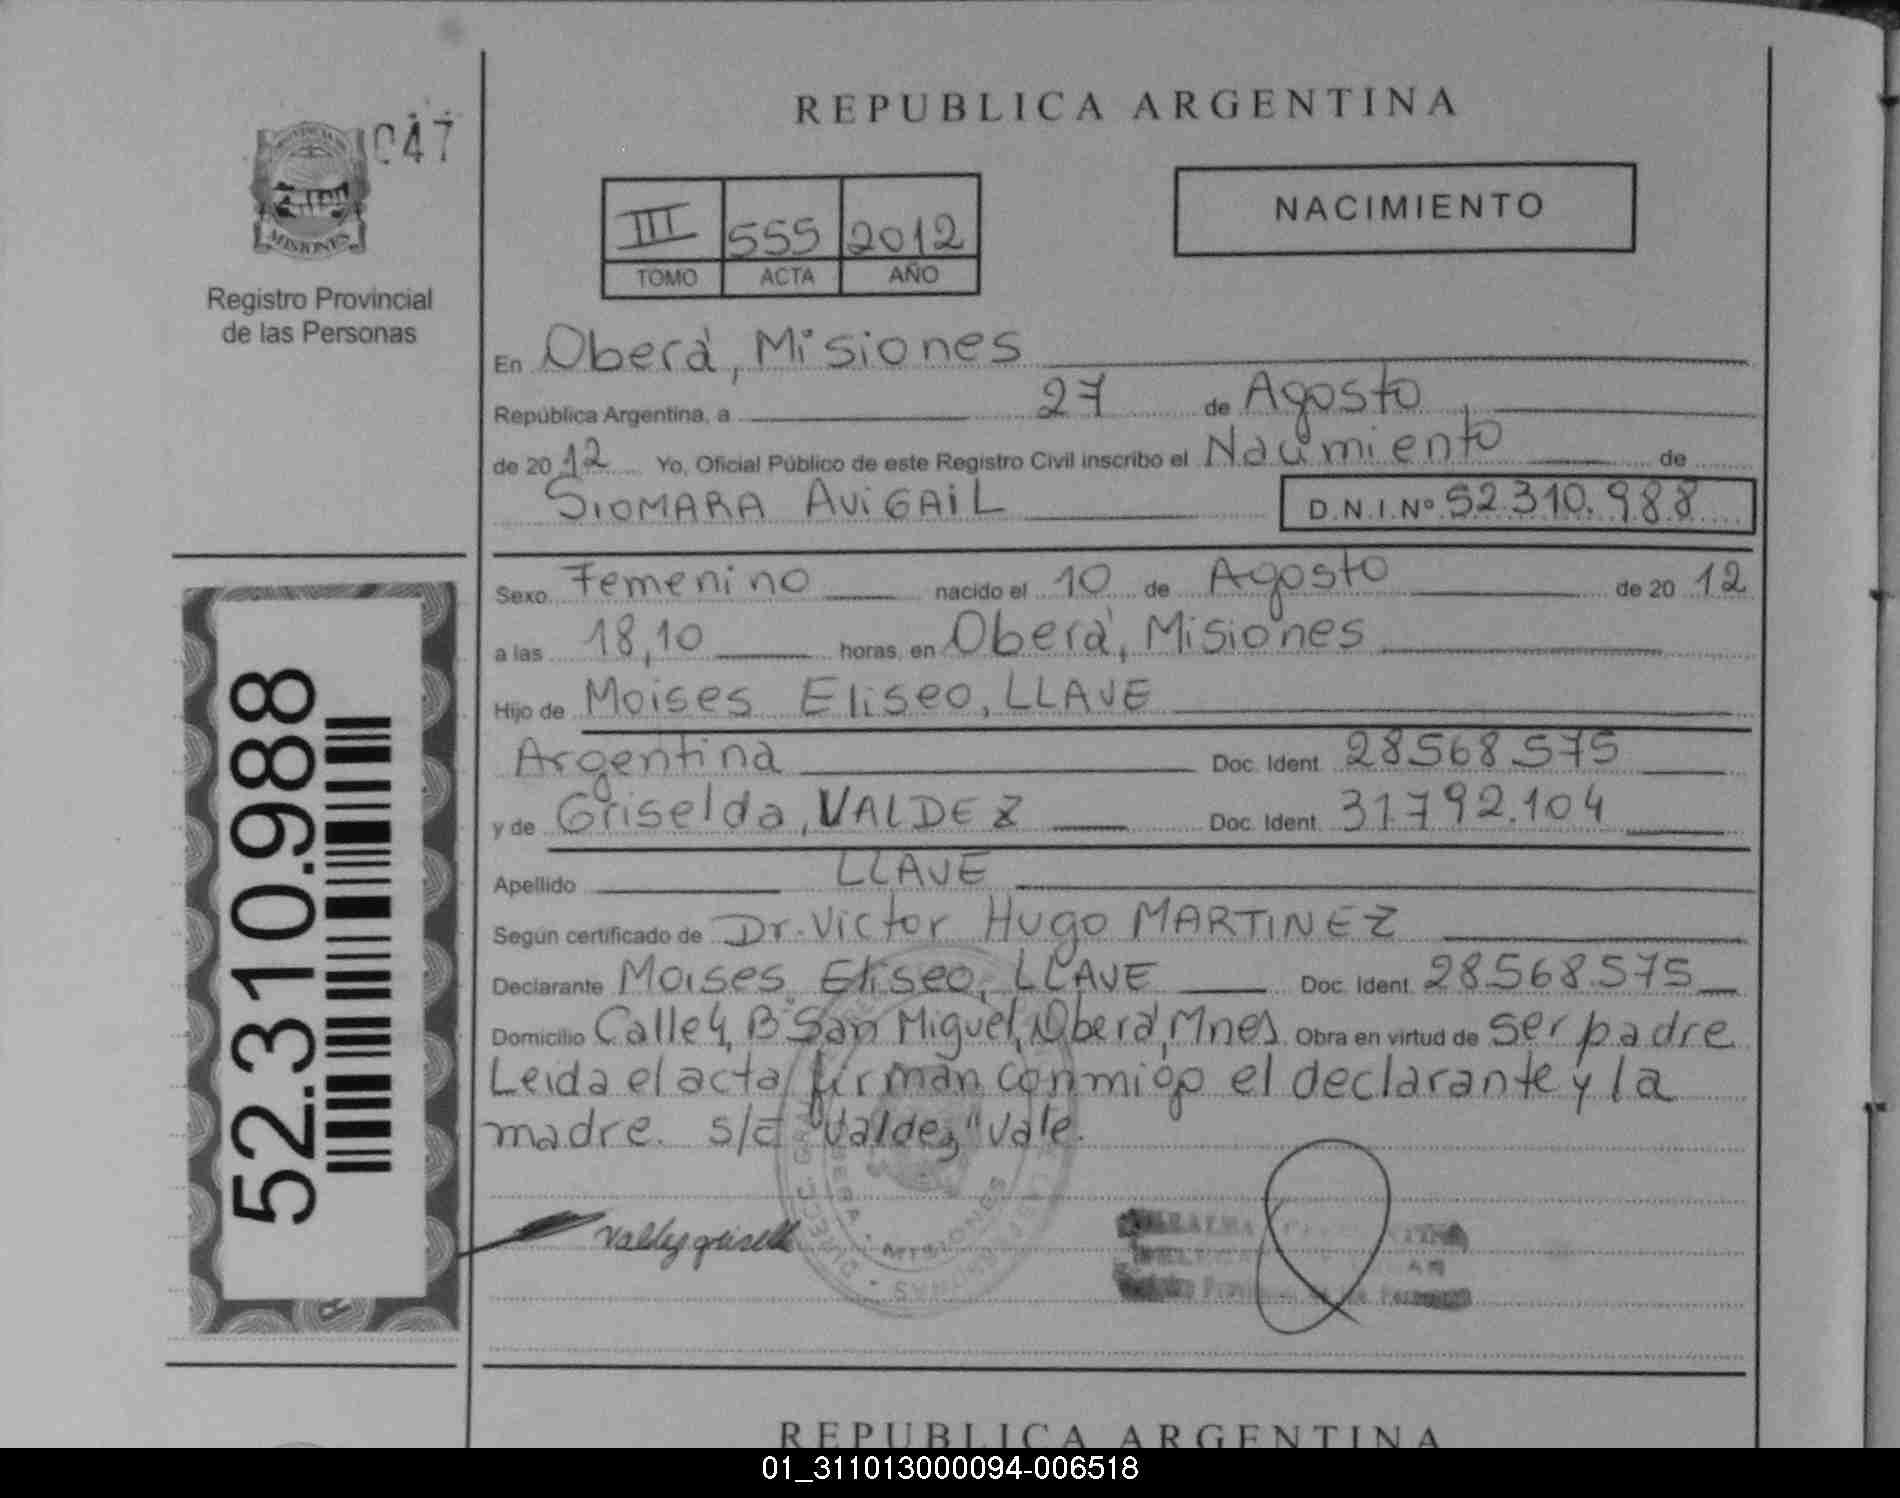 REPUBLICA ARGENTINA
047
MISIONES
NACIMIENTO
III 555 2012
TOMO ACTA AÑO
Registro Provincial
de las Personas
En Oberá, Misiones
República Argentina, a 27 de Agosto
de 2012 Yo, Oficial Público de este Registro Civil inscribo el Nacimiento de
SIOMARA AViGAiL D.N.I.Nº 52.310.988
Sexo Femenino nacido el 10 de Agosto de 2012
a las 18,10 horas, en Oberá, Misiones
Hijo de Moises Eliseo, LLAVE
Argentina Doc. Ident. 28.568.575
y de Griselda, VALDEZ Doc. Ident. 31.792.104
Apellido LLAVE
Según certificado de Dr. Victor Hugo MARTINEZ
Declarante Moises Eliseo, LLAVE Doc. Ident. 28.568.575
Domicilio Calle 4, Bº San Miguel, Oberá, Mnes. Obra en virtud de ser padre
Leida el acta firman conmigo el declarante y la
madre. s/c "Valdez" Vale.
52.310.988
Valdez
MISIONES
REPUBLICA ARGENTINA
01_311013000094-006518